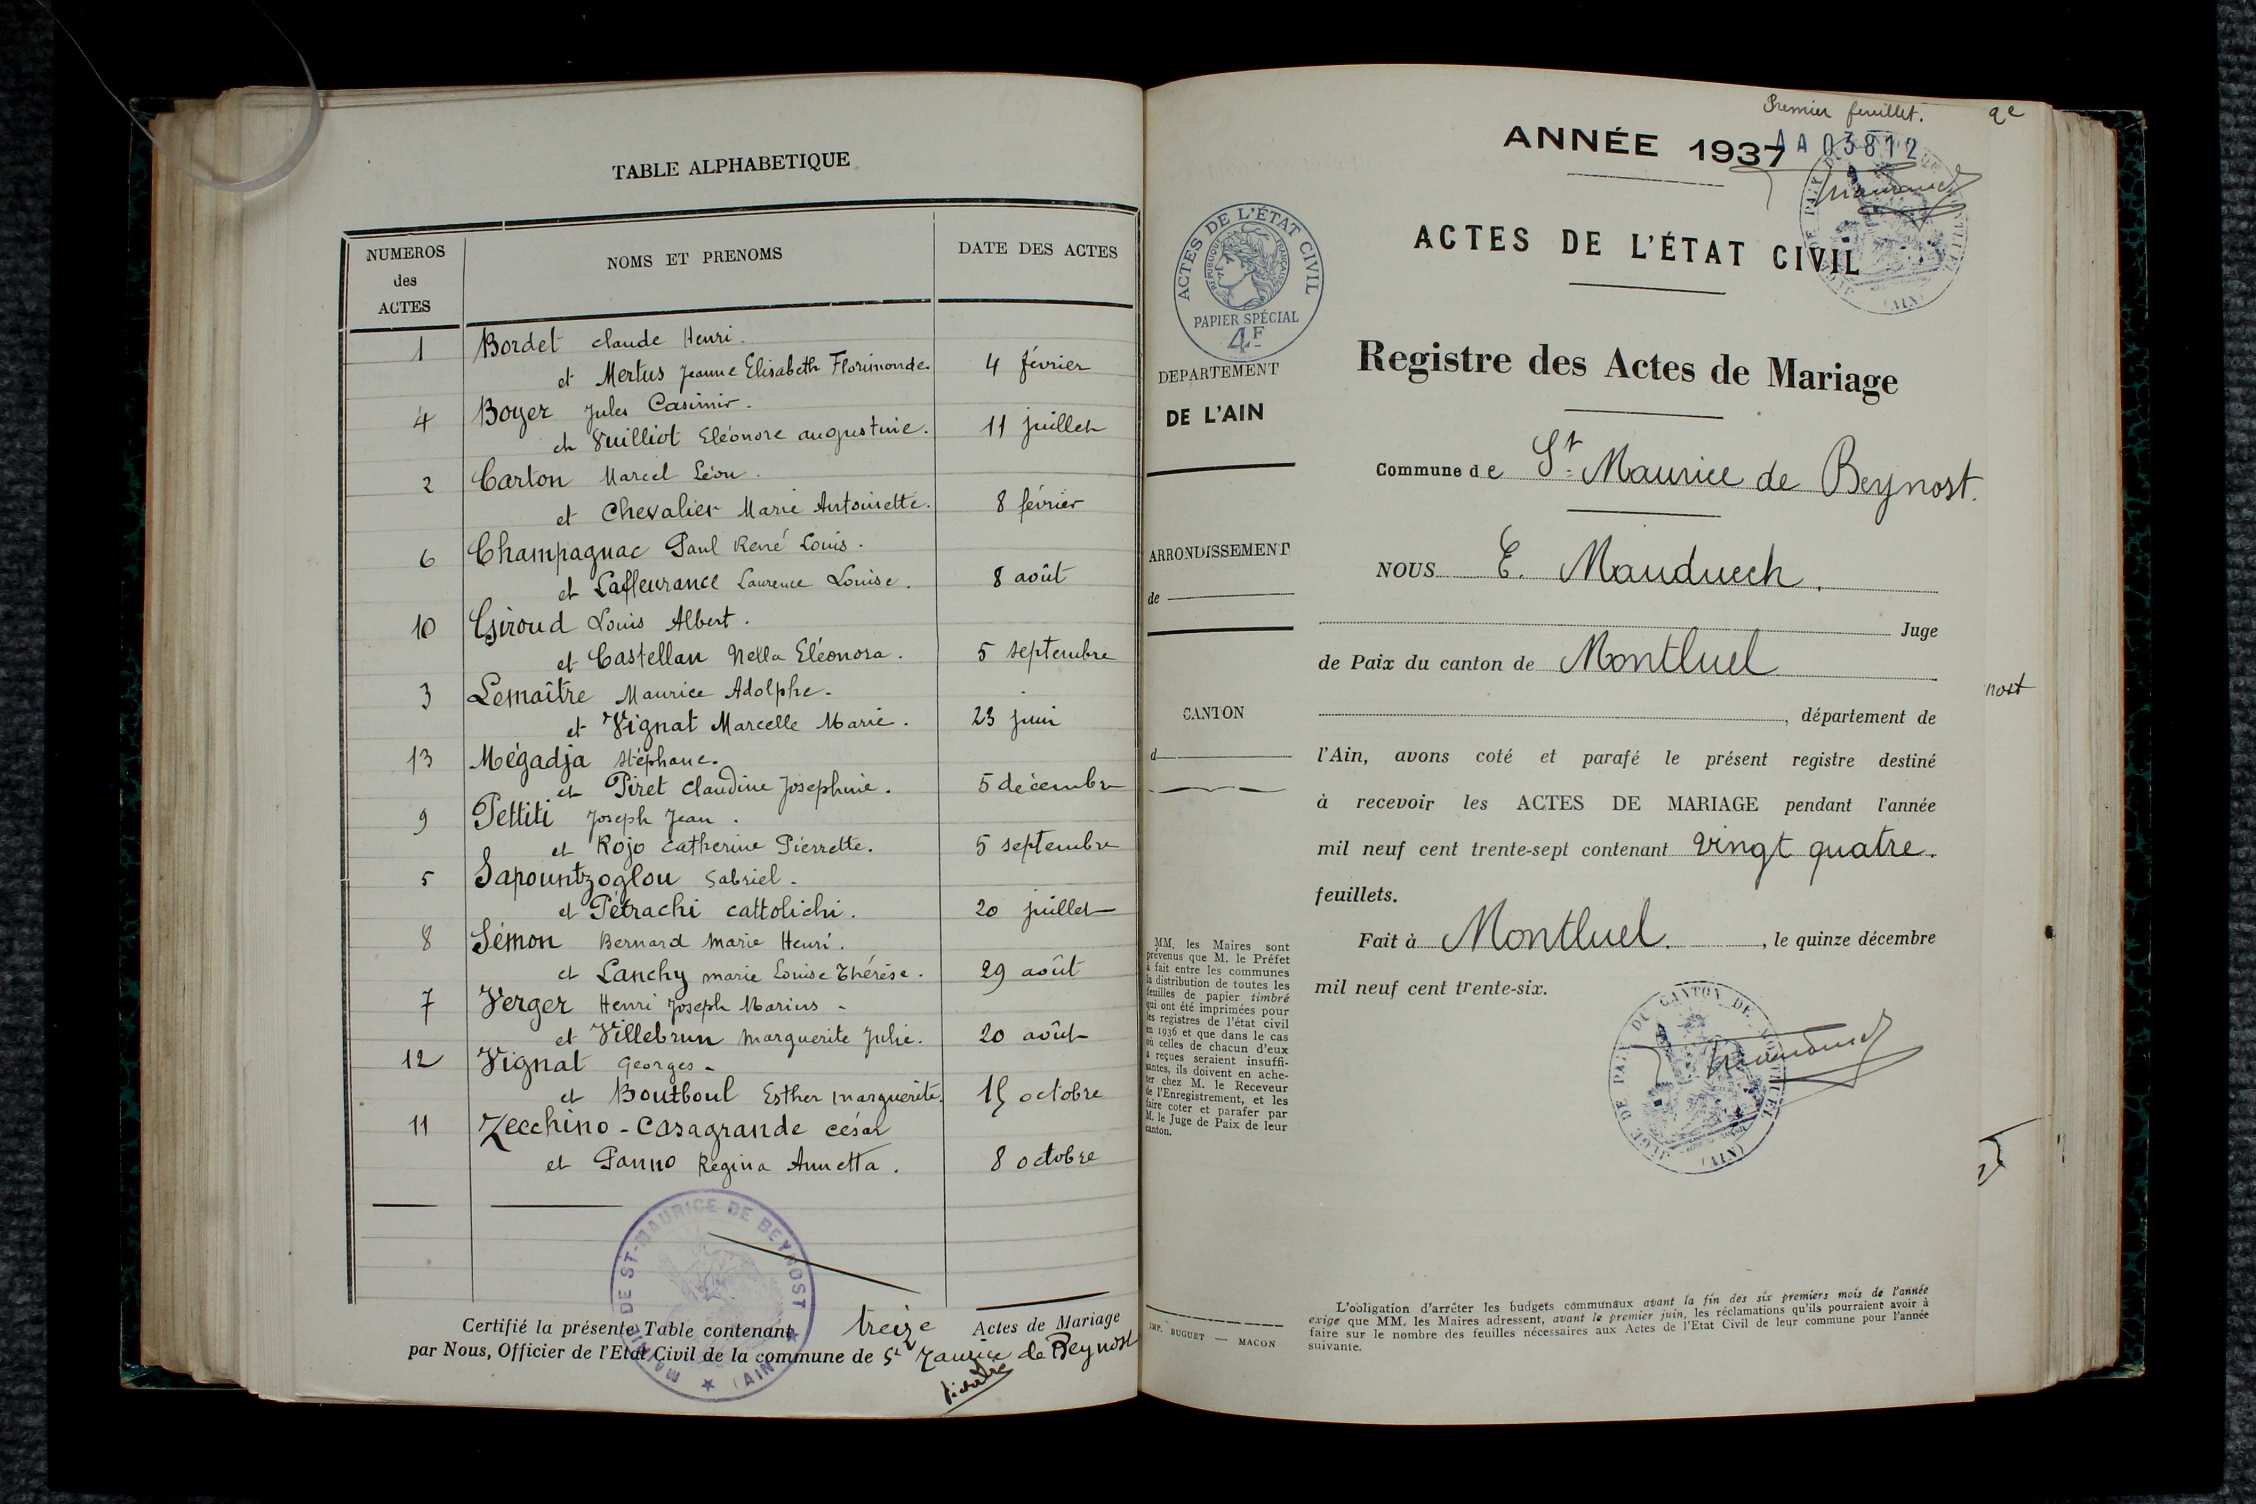 TABLE ALPHABETIQUE
NUMEROS
des
ACTES
NOMS ET PRENOMS
DATE DES ACTES
1 Bordet Claude Henri.
et Mertus Jeanne Elisabeth Florimonde. 4 février
4 Boyer Jules Casimir.
et Vuilliot Eléonore augustine. 11 juillet
2 Carton Marcel Léon.
et Chevalier Marie Antoinette. 8 février
6 Champagnac Paul René Louis.
et Lafleurance Laurence Louise. 8 août
10 Giroud Louis Albert.
et Castellan Nella Eléonora. 5 septembre
3 Lemaître Maurice Adolphe.
et Vignat Marcelle Marie. 23 juin
13 Mégadja Stéphane.
et Piret Claudine Josephine. 5 décembre
9 Pettiti Joseph Jean.
et Rojo Catherine Pierrette. 5 septembre
5 Sapountzoglou Gabriel.
et Pétrachi Cattolichi. 20 juillet
8 Sémon Bernard Marie Henri.
et Lanchy Marie Louise Thérèse. 29 août
7 Verger Henri Joseph Marius
et Villebrun Marguerite Julie. 20 août
12 Vignat Georges
et Boutboul Esther Marguerite. 15 octobre
11 Zecchino - Casagrande César
et Panno Regina Annetta. 8 octobre
MAIRIE DE ST-MAURICE DE BEYNOST
(AIN)
Certifié la présente Table contenant treize Actes de Mariage
par Nous, Officier de l'Etat Civil de la commune de St Maurice de Beynost
Premier feuillet.
ANNÉE 1937
AA 03812
ACTES DE L'ÉTAT CIVIL
RÉPUBLIQUE FRANÇAISE
PAPIER SPÉCIAL
4F
ACTES DE L'ÉTAT CIVIL
JUGE DE PAIX DU CANTON DE MONTLUEL
(AIN)
DEPARTEMENT
DE L'AIN
ARRONDISSEMENT
de
CANTON
d
MM. les Maires sont
prévenus que M. le Préfet
a fait entre les communes
la distribution de toutes les
feuilles de papier timbré
qui ont été imprimées pour
les registres de l'état civil
en 1936 et que dans le cas
où celles de chacun d'eux
a reçues seraient insuffi-
santes, ils doivent en ache-
ter chez M. le Receveur
de l'Enregistrement, et les
faire coter et parafer par
M. le Juge de Paix de leur
canton.
IMP. BUGUET — MACON
Registre des Actes de Mariage
Commune de St Maurice de Beynost.
NOUS E. Manduech,
Juge
de Paix du canton de Montluel
, département de
l'Ain, avons coté et parafé le présent registre destiné
à recevoir les ACTES DE MARIAGE pendant l'année
mil neuf cent trente-sept contenant vingt quatre.
feuillets.
Fait à Montluel. , le quinze décembre
mil neuf cent trente-six.
JUGE DE PAIX DU CANTON DE MONTLUEL
(AIN)
L'obligation d'arrêter les budgets communaux avant la fin des six premiers mois de l'année
exige que MM. les Maires adressent, avant le premier juin, les réclamations qu'ils pourraient avoir à
faire sur le nombre des feuilles nécessaires aux Actes de l'Etat Civil de leur commune pour l'année
suivante.
nost